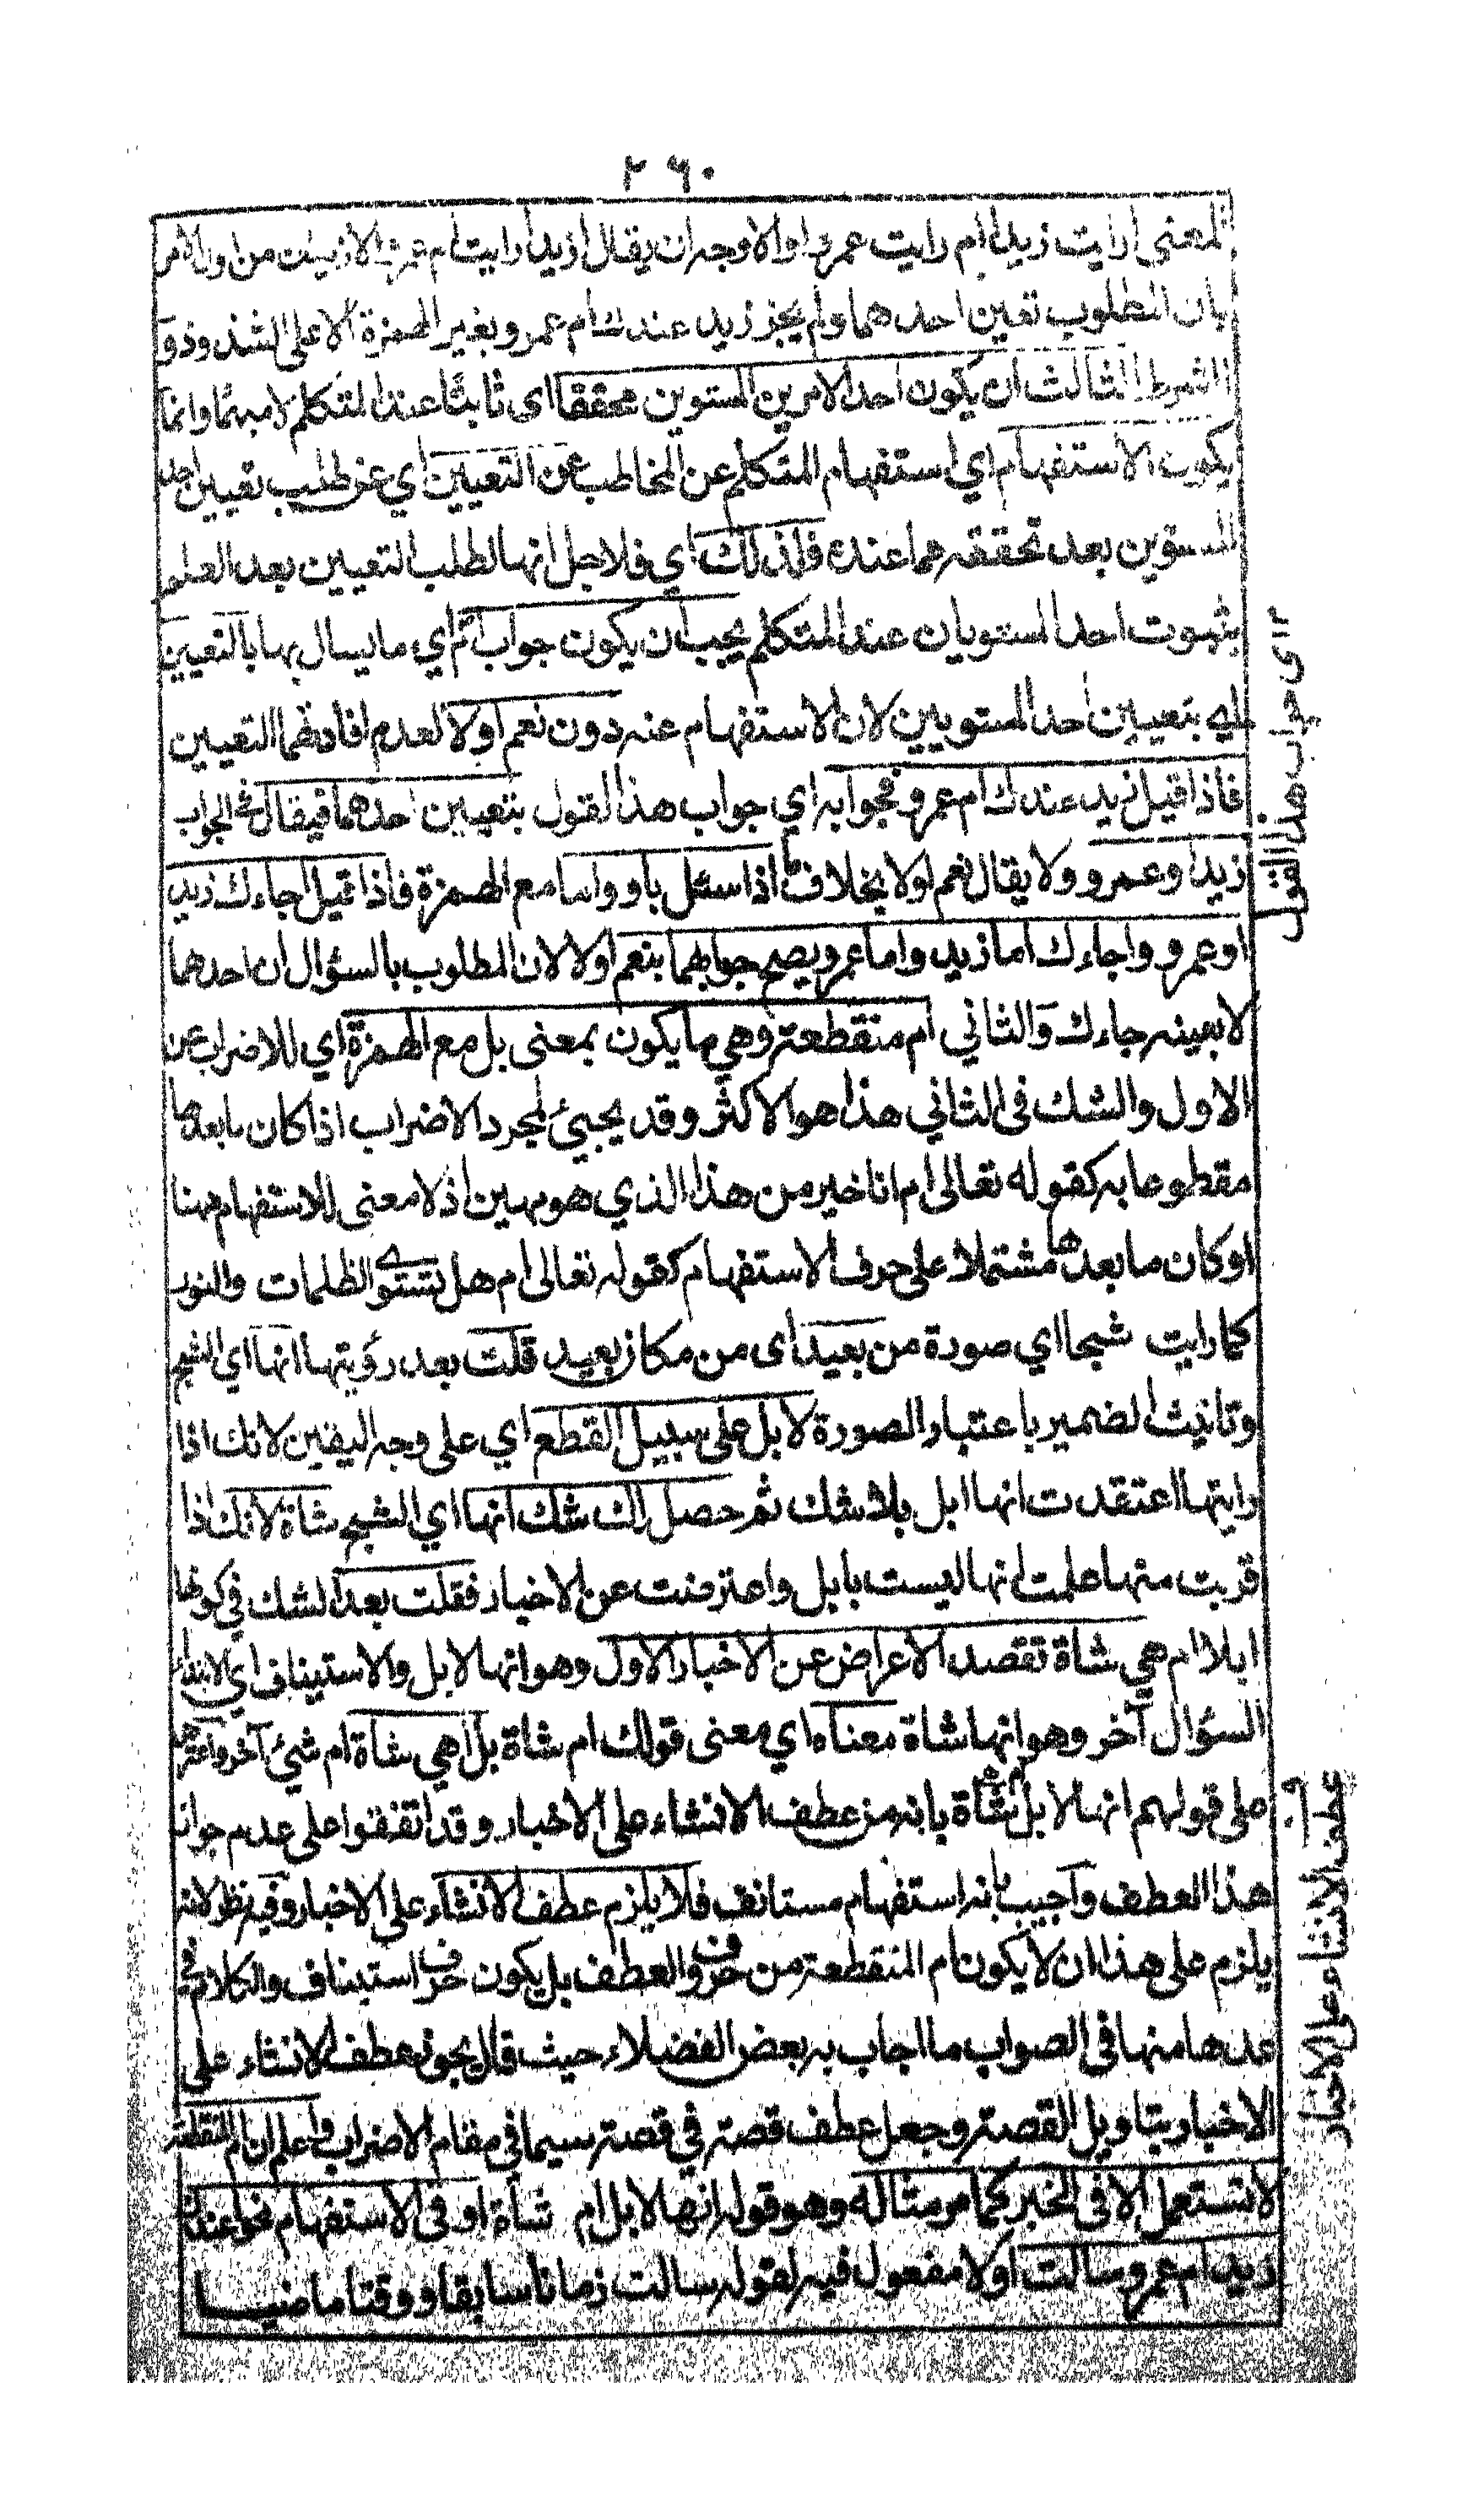 ٢٦٠
المعنى ارايت زيدا ام رايت عمروا والاوجه ان يقال ازيدا رايت ام عمروا الازيدان من اول الامر
بان المطلوب تعين احدهما ولم يجز زيد عندك ام عمرو بغير الهمزة الا على الشذوذ و
الشرط الثالث ان يكون احد الامرين المستويين محققا اى ثابتا عند المتكلم لا مبهما وانما
يكون الاستفهام اي استفهام المتكلم عن المخاطب عن التعيين اي عن طلب تعيين احد
المستوين بعد تحققهما عنده فلذلك اي فلاجل انها لطلب التعيين بعد العلم
بثبوت احد المستويان عند المتكلم يجب ان يكون جواب ام اي ما يسال بها بالتعيين
اي بتعيين احد المستويين لان الاستفهام عنه دون نعم اولا لعدم افادتهما التعيين
فاذا قيل ازيد عندك ام عمرو فجوابه اي جواب هذا القول بتعيين احدهما فيقال في الجواب
زيد او عمرو ولا يقال نعم اولا بخلاف ما اذا سئل باو واما مع الهمزة فاذا قيل اجاءك زيد
او عمرو واجاءك اما زيد واما عمرو يصح جوابهما بنعم اولا لان المطلوب بالسؤال ان احدهما
لا بعينه جاءك والثاني ام منقطعة وهي ما يكون بمعنى بل مع الهمزة اي للاضراب عن
الاول والشك فى الثاني هذا هو الاكثر وقد يجيئ لمجرد الاضراب اذا كان ما بعدها
مقطوعا به كقوله تعالى ام انا خير من هذا الذي هو مهين اذ لا معنى للاستفهام ههنا
او كان ما بعدها مشتملا على حرف الاستفهام كقوله تعالى ام هل تستوي الظلمات والنور
كما رايت شبحا اي صورة من بعيد اى من مكان بعيد قلت بعد رؤيتها انها اي الشبح
وتانيث الضمير باعتبار الصورة لابل على سبيل القطع اي على وجه اليقين لانك اذا
رايتها اعتقدت انها ابل بلا شك ثم حصل لك شك انها اي الشبح شاة لانك اذا
قربت منها علمت انها ليست بابل واعترضت عن الاخبار فقلت بعد الشك في كونها
ابلا ام هي شاة تقصد الاعراض عن الاخبار الاول وهو انها لابل والاستيناف اي الابتداء
السؤال آخر وهو انها شاة معناه اي معنى قولك ام شاة بل اهي شاة ام شيئ آخر واعترض
على قولهم انها لابل ام شاة بانه من عطف الانشاء على الاخبار وقد اتفقوا على عدم جواز
هذا العطف واجيب بانه استفهام مستانف فلا يلزم عطف الانشاء على الاخبار وفيه نظر لانه
يلزم على هذا ان لا يكون ام المنقطعة من حروف العطف بل يكون حرف استيناف والكلام في
عدها منها فى الصواب ما اجاب به بعض الفضلاء حيث قال يجوز عطف الانشاء على
الاخبار بتاويل القصة وجعل عطف قصة في قصة سيما في مقام الاضراب واعلم ان ام المنقطعة
لا تستعمل الا فى الخبر كما مر مثاله وهو قوله انها لابل ام شاة او فى الاستفهام نحو اعندك
زيد ام عمرو سالت اولا مفعول فيه لقوله سالت زمانا سابقا ووقتا ماضيا
١٢ اى جواب هذا القول
عطف الانشاء على الاخبار